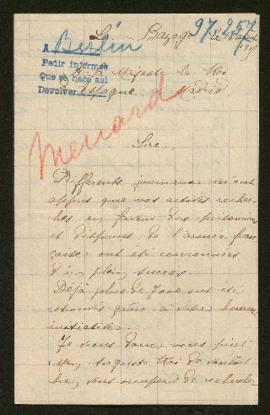 97.257
La Bazoge
A Berlin
Pedir informes
Que se hace así
Devolver
A Sa Majesté le Roi
d'Espagne à Madrid
Menard
Sire,
Différents journaux m'ont
appris que vos actives recher-
ches en faveur des prisonniers
et disparus de l'armée fran-
çaise ont été couronnées
d'un plein succès.
Déjà plus de ont été
retrouvés grâce à votre heureuse
initiative.
Je viens donc, vous prier
de vouloir
bien, vous occuper de rechercher